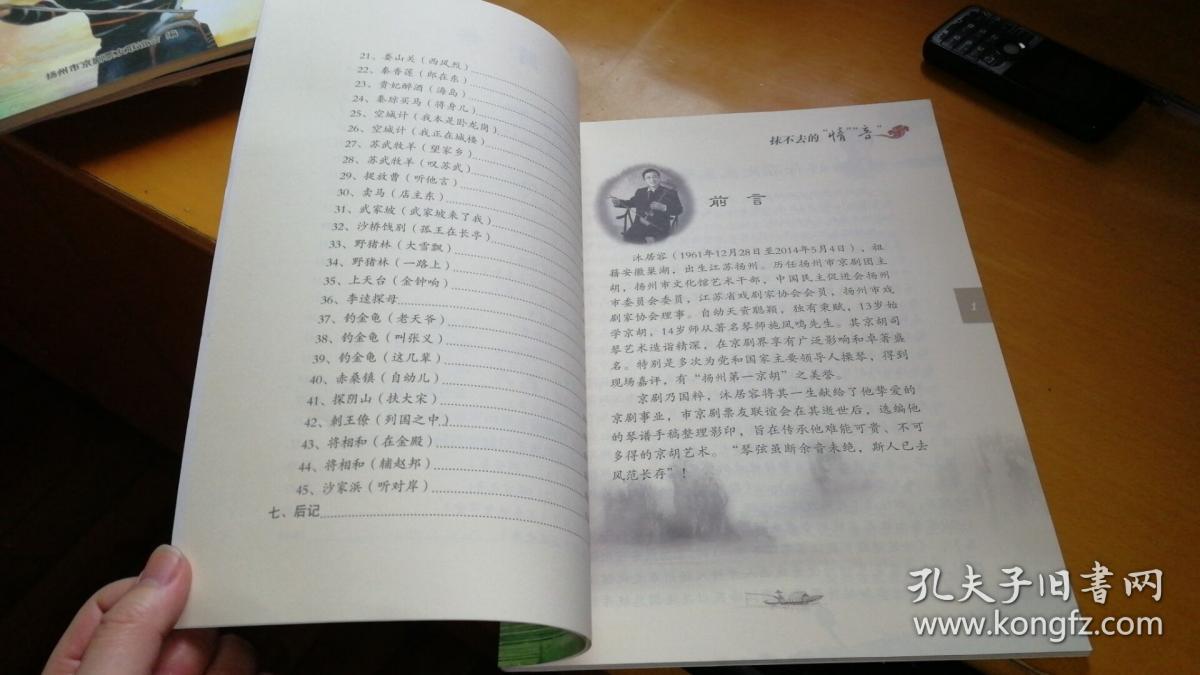 扬州市京剧票友联谊会 编
21、娄山关（西风烈）
22、秦香莲（郎在东）
23、贵妃醉酒（海岛）
24、秦琼买马（将身儿）
25、空城计（我本是卧龙岗）
26、空城计（我正在城楼）
27、苏武牧羊（望家乡）
28、苏武牧羊（叹苏武）
29、捉放曹（听他言）
30、卖马（店主东）
31、武家坡（武家坡来了我）
32、沙桥饯别（孤王在长亭）
33、野猪林（大雪飘）
34、野猪林（一路上）
35、上天台（金钟响）
36、李逵探母
37、钓金龟（老天爷）
38、钓金龟（叫张义）
39、钓金龟（这几辈）
40、赤桑镇（自幼儿）
41、探阴山（扶大宋）
42、刺王僚（列国之中）
43、将相和（在金殿）
44、将相和（辅赵邦）
45、沙家浜（听对岸）
七、后记
抹不去的“情”“音”
前 言
沐居容（1961年12月28日至2014年5月4日），祖
籍安徽巢湖，出生江苏扬州。历任扬州市京剧团主
胡，扬州市文化馆艺术干部，中国民主促进会扬州
市委员会委员，江苏省戏剧家协会会员，扬州市戏
剧家协会理事。自幼天资聪颖，独有禀赋，13岁始
学京胡，14岁师从著名琴师施凤鸣先生。其京胡司
琴艺术造诣精深，在京剧界享有广泛影响和卓著盛
名。特别是多次为党和国家主要领导人操琴，得到
现场嘉评，有“扬州第一京胡”之美誉。
京剧乃国粹，沐居容将其一生献给了他挚爱的
京剧事业，市京剧票友联谊会在其逝世后，选编他
的琴谱手稿整理影印，旨在传承他难能可贵、不可
多得的京胡艺术。“琴弦虽断余音未绝，斯人已去
风范长存”！
1
孔夫子旧书网
www.kongfz.com